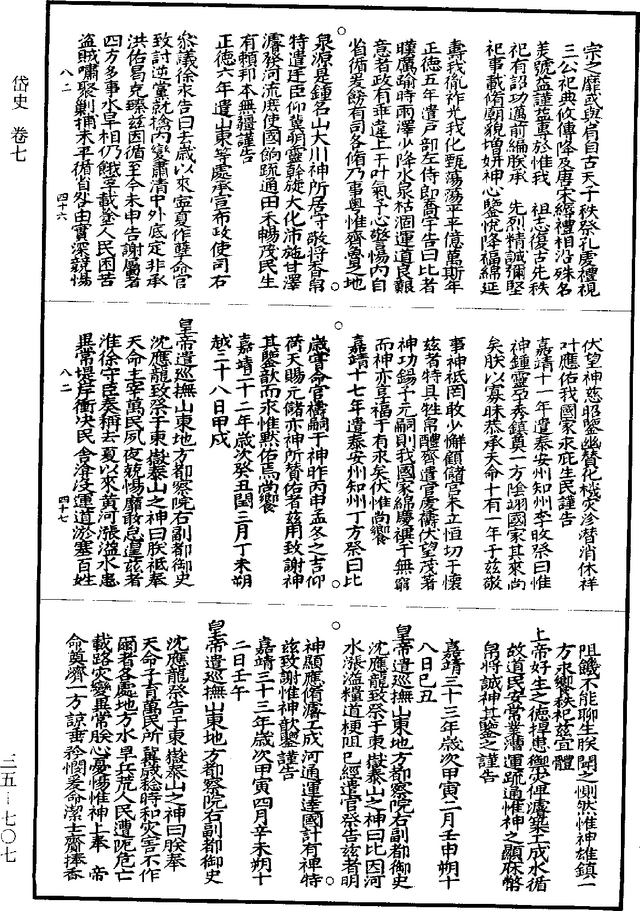 岱史 卷七
宗之靡或與焉自古天子秩祭孔虔禮視
三公祀典攸傳降及唐宋縟禮相沿殊名
美號益謹益專於惟我 祖志復古先秩
祀有詔功邁前編朕承 先烈精誠彌堅
祀事載脩廟貌增妍神心鑒悅降福綿延
壽我胤祚光我化甄蕩蕩平平億萬斯年
正德五年遣戶部左侍郎喬宇告曰比者
暵厲踰時雨澤少降水泉枯涸運道艱
意者政有乖違上干和氣予心警惕內自
省循爰飭有司各脩乃事粵惟齊魯之地
泉源是鍾名山大川神所居守敬將香帛
特遣廷臣仰冀明靈斡旋大化沛施甘澤
濬發河流庶使國餉疏通田禾暢茂民生
有賴邦本無疆謹告
正德六年遣山東等處承宣布政使司右
叅議徐永告曰去歲以來寧夏作孽命官
致討逆黨就擒內變肅清中外底定非承
洪佑曷克臻茲因循至今未申告謝屬者
四方多事水旱相仍餓莩載塗人民困苦
盜賊嘯聚剿捕未平循自咎由實深兢惕
八二 四十六
伏望神慈昭鑒幽贊化機災沴潛消休祥
叶應佑我國家永庇生民謹告
嘉靖十一年遣泰安州知州李旼祭曰惟
神鍾靈孕秀鎮奠一方陰翊國家其來尚
矣朕以寡昧恭承天命十有一年于茲敬
事神祗罔敢少懈顧儲宮未立恒切于懷
茲者特具牲帛醴齊遣官虔禱伏望茂著
神功錫予元嗣則我國家綿慶祺于無窮
而神亦享福于有永矣伏惟尚饗
嘉靖十七年遣泰安州知州丁方祭曰比
歲嘗命官禱嗣于神昨丙申孟冬之吉仰
荷天賜元儲亦神所贊佑者茲用致謝神
其鑒歆而永惟默佑焉尚饗
嘉靖二十二年歲次癸丑閏三月丁未朔
越二十八日甲戌
皇帝遣巡撫山東地方都察院右副都御史
沈應龍致祭于東嶽泰山之神曰朕祗奉
天命主宰萬民夙夜兢惕靡敢怠遑茲者
淮徐守臣奏稱去夏以來黃河漲溢水患
異常堤岸衝決民舍渰沒運道淤塞百姓
八二 四十七
阻饑不能聊生朕聞之惻然惟神雄鎮一
方永饗秩祀茲宜體
上帝好生之德捍患禦災俾濬築工成水循
故道民安常業漕運疏通惟神之顯庥幣
帛將誠神其鑒之謹告
嘉靖三十三年歲次甲寅二月壬申朔十
八日己丑
皇帝遣巡撫山東地方都察院右副都御史
沈應龍致祭于東嶽泰山之神曰比因河
水漲溢糧道梗阻已經遣官祭告茲者明
神顯應脩濬工成河通運達國計有裨特
茲致謝惟神歆鑒謹告
嘉靖三十三年歲次甲寅四月辛未朔十
二日壬午
皇帝遣巡撫山東地方都察院右副都御史
沈應龍祭告于東嶽泰山之神曰朕奉
天命子育萬民所冀歲稔時和災害不作
爾者各處地方水旱兵荒人民遭阨危亡
載路災變異常朕心憂惕惟神上奉 帝
命奠濟一方諒垂矜憫爰命潔士齎捧香
三五—七〇七